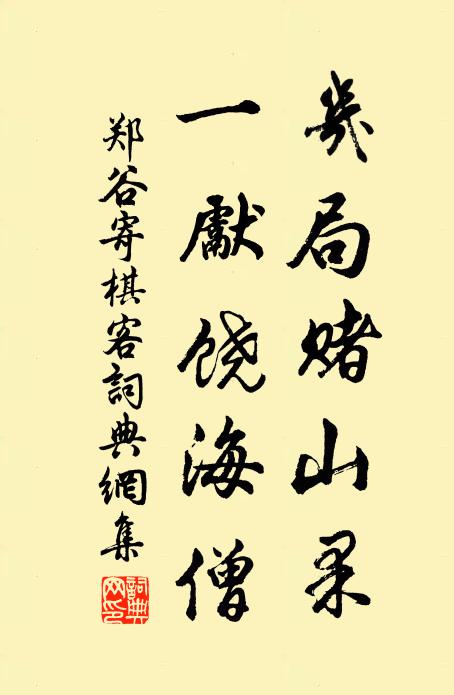 幾局赌山果
一獻饶海僧
郑谷寄棋客詞典網集
詞典网印